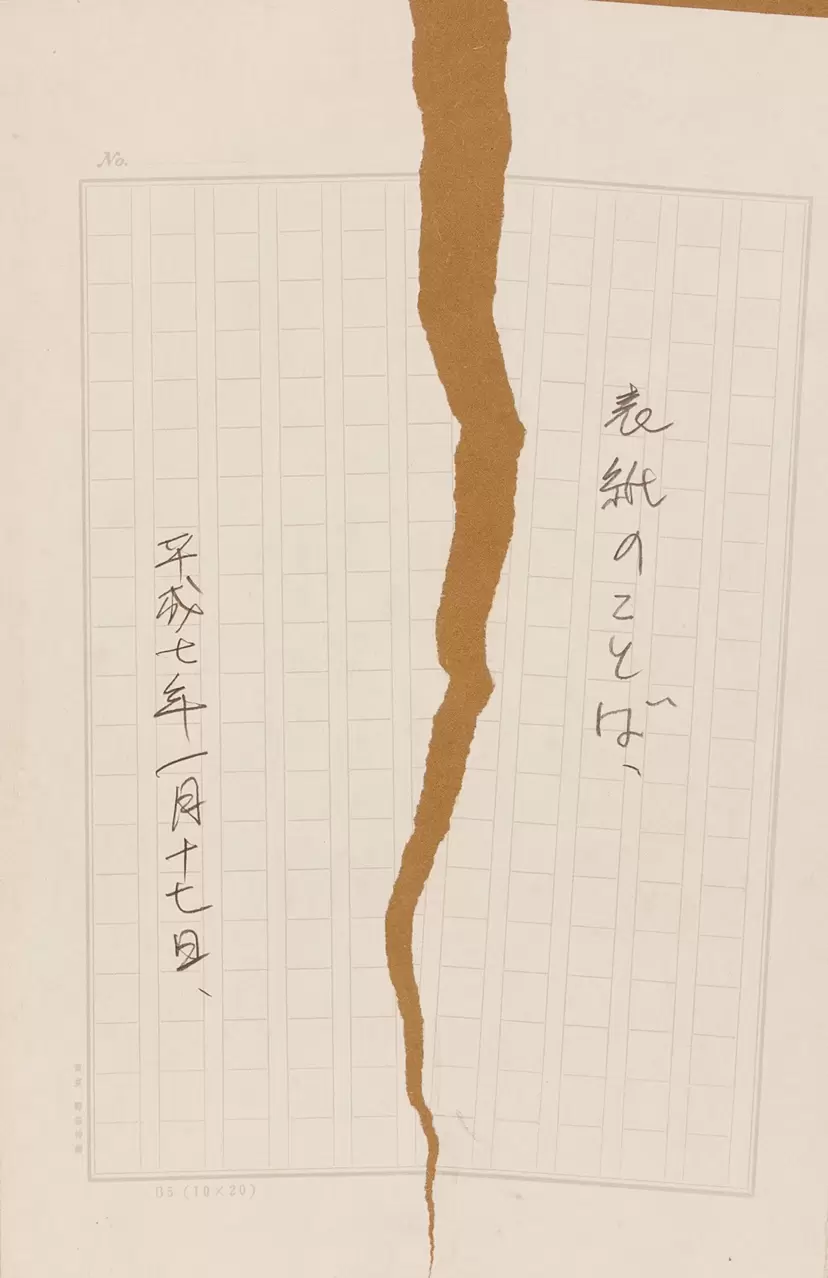 No.
表紙のことば、
平成七年一月十七日、
B5 (10×20)